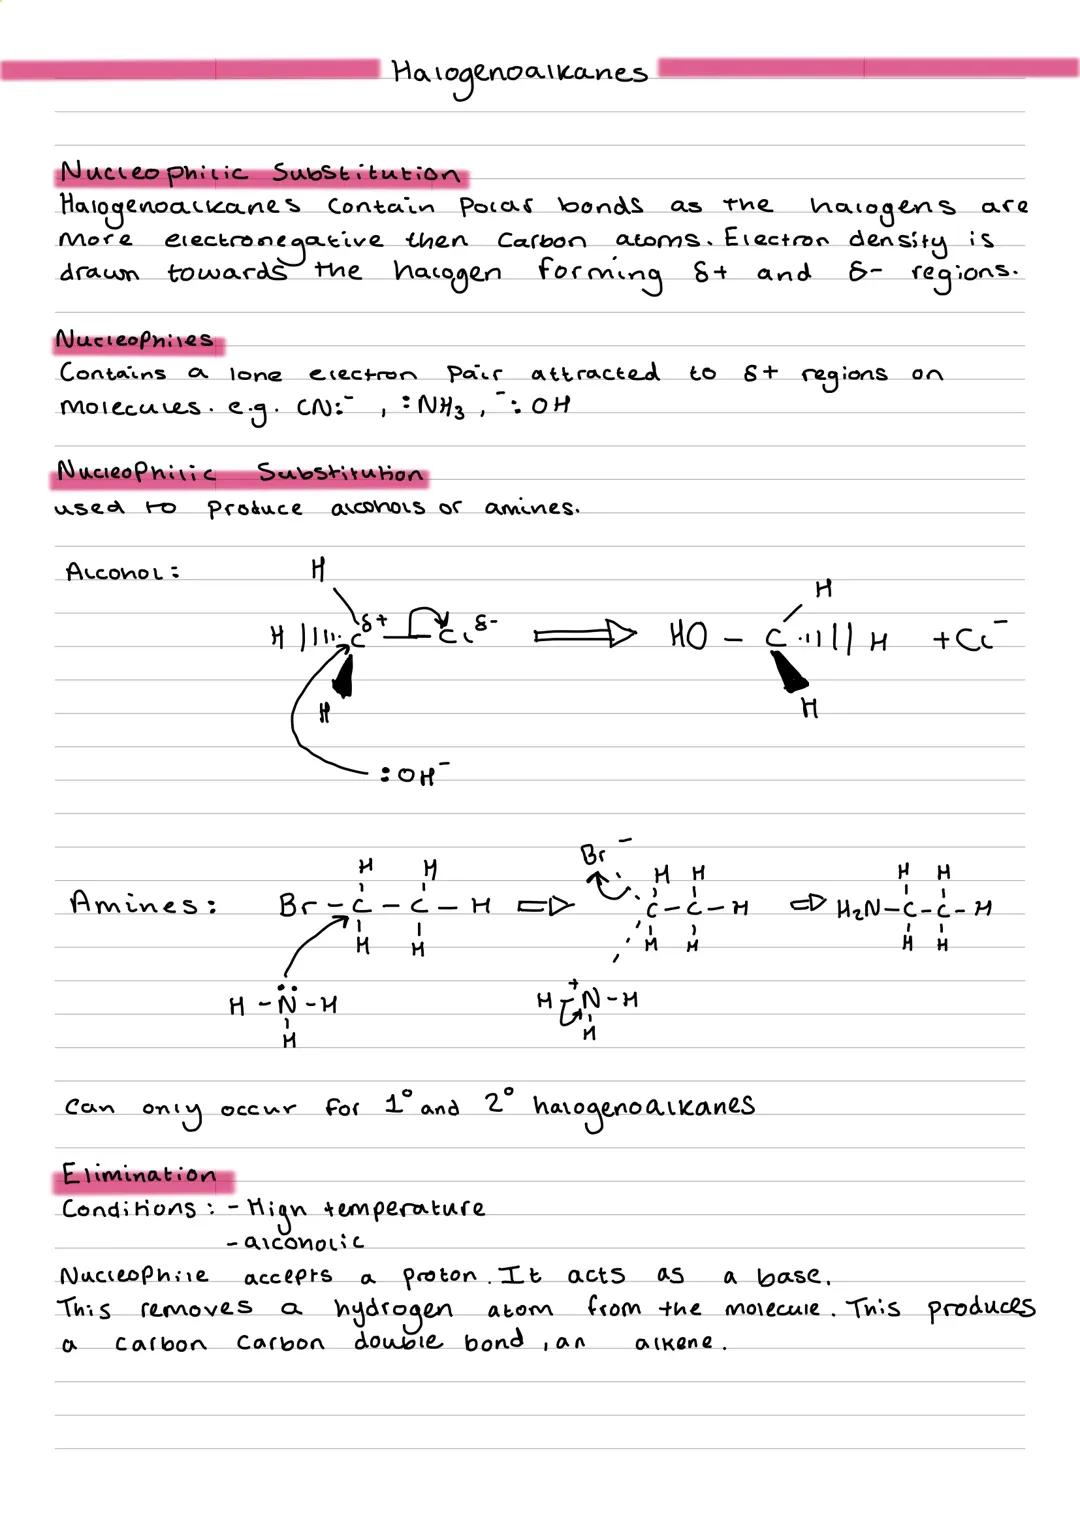 Halogenoalkanes
Nucleophilic Substitution
Halogenoalkanes contain polar bonds as the halogens are
more electronegative then carbon atoms. Electron density is
drawn towards the halogen forming δ+ and δ- regions.
Nucleophiles
Contains a lone electron pair attracted to δ+ regions on
molecules. e.g. CN:⁻ , :NH₃ , ⁻:OH
Nucleophilic Substitution
used to produce alcohols or amines.
Alcohol:
H H
H C δ+ Cl δ- ⇒ HO - C H + Cl⁻
H H
:OH⁻
Br⁻
H H H H H H
Amines: Br-C-C-H ⇒ C-C-H ⇒ H₂N-C-C-H
H H H H H H
H-N̈-H H-N⁺-H
H H
Can only occur for 1° and 2° halogenoalkanes
Elimination
Conditions: - High temperature
- alcoholic
Nucleophile accepts a proton. It acts as a base.
This removes a hydrogen atom from the molecule. This produces
a carbon carbon double bond, an alkene.